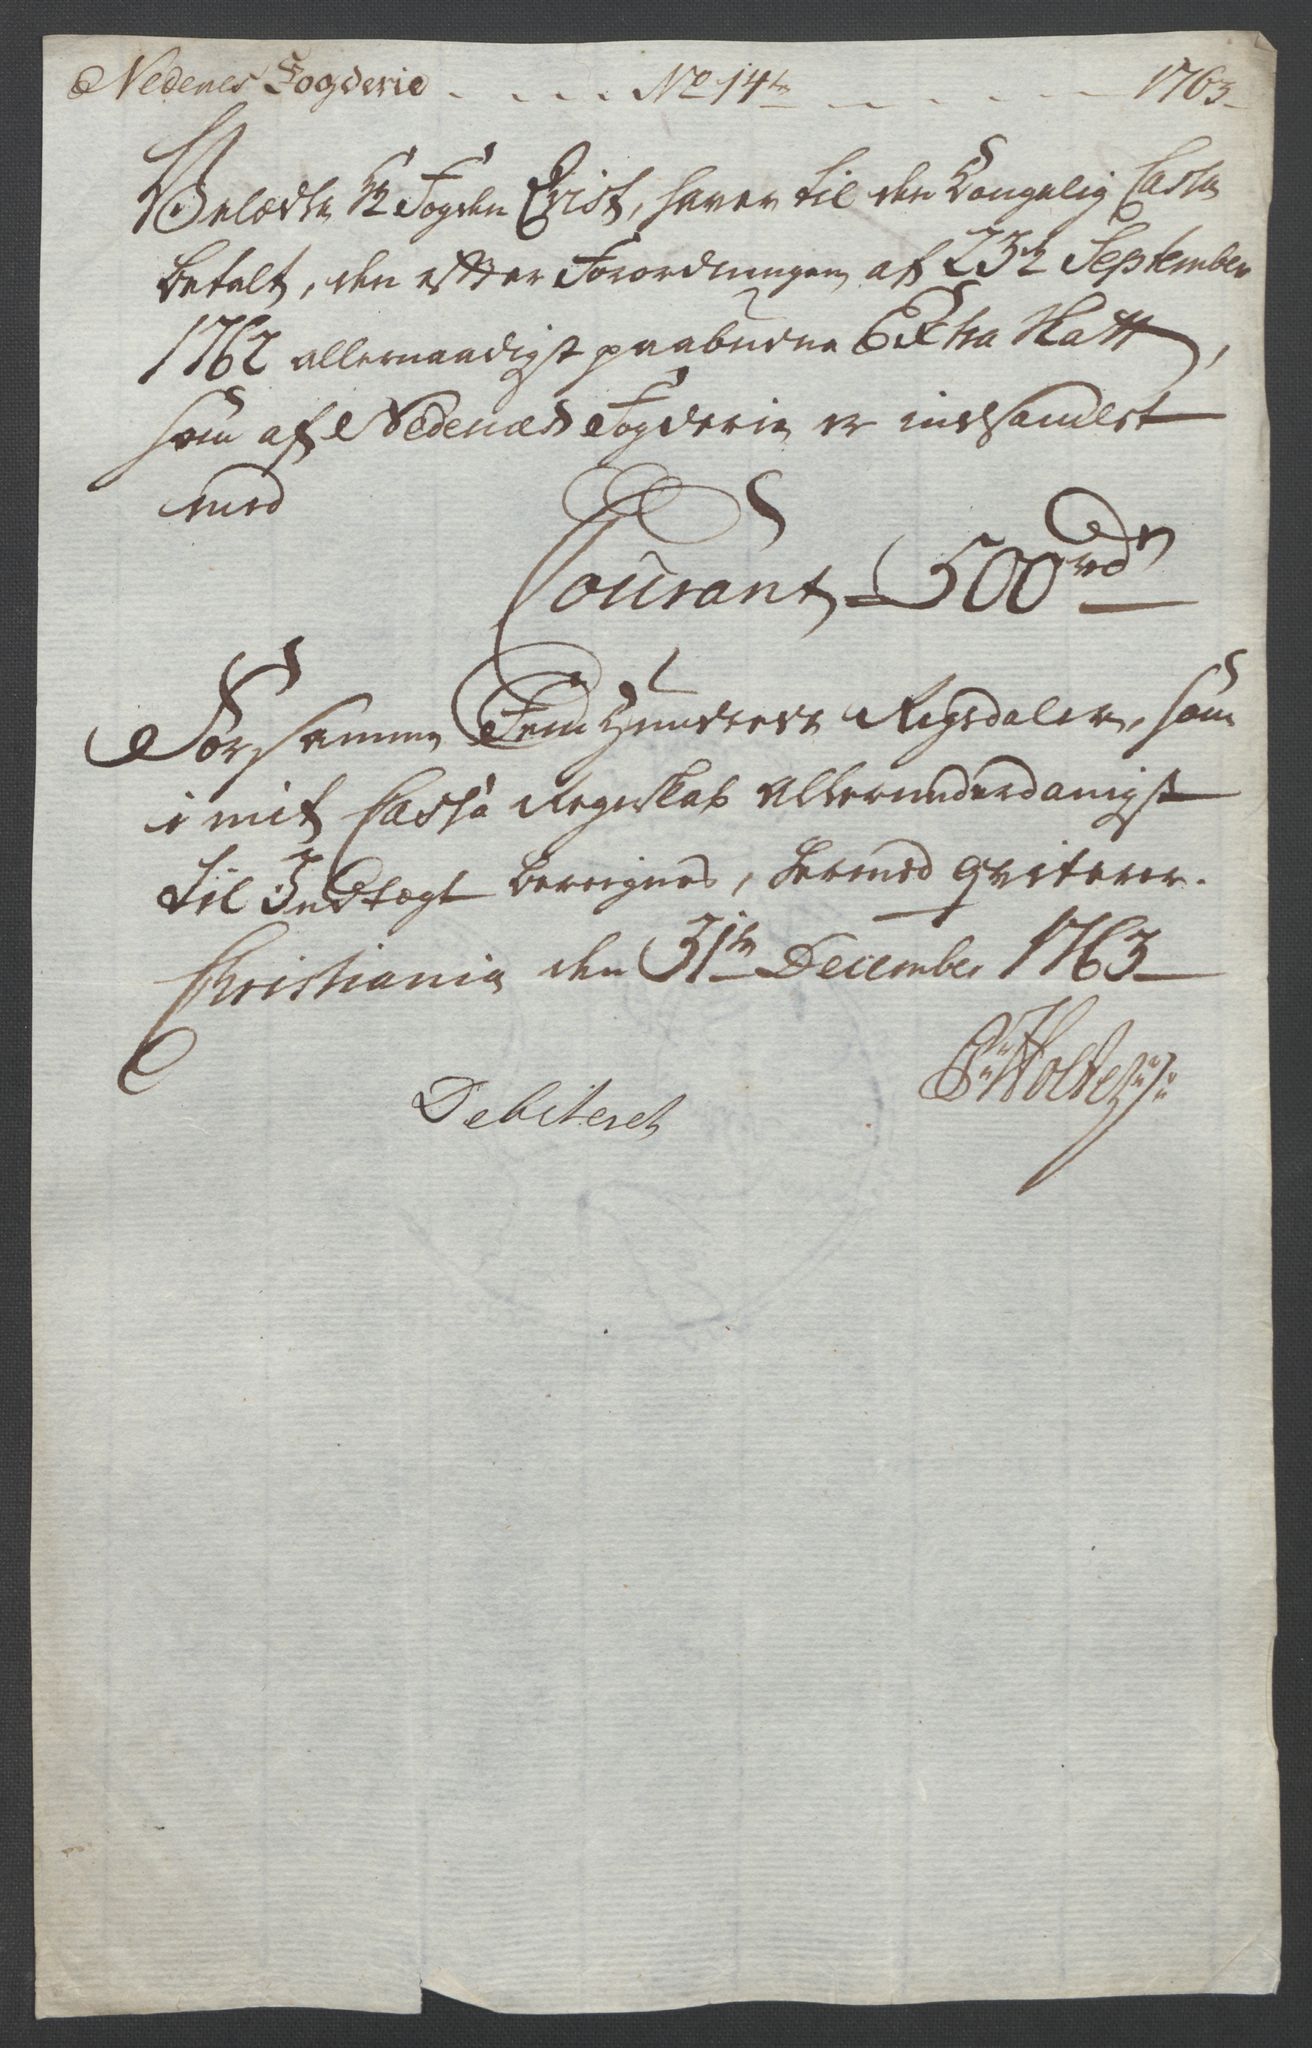 Nedenes Fogderie . . . . . No 14de 1763
Velædle Hr Fogden Qvist, haver til den Kongelig Cassa
betalt, den efter Forordningen af 23de September
1762 allernaadigst paabudne Extra Skatt,
som af Nedenæs Fogderie er indsamlest
med
Courant 500 rdr
Forsamme Fem Hundrede Rigsdaler, som
i mit Cassa Regnskab Allerunderdanigst
til Indtægt bereignes, hermed qviterer.
Christiania den 31te December 1763
Holte
Debiteret